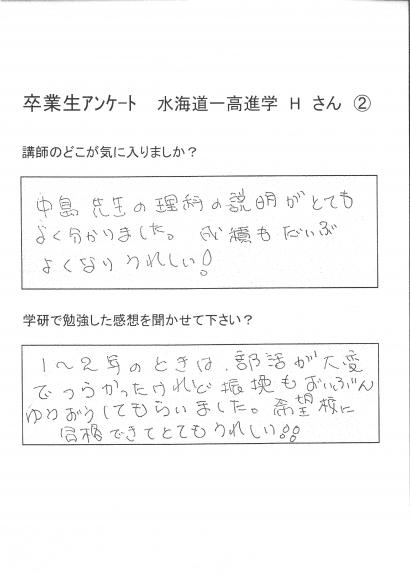 卒業生アンケート　水海道一高進学　H　さん　②
講師のどこが気に入りましか？
中島 先生の理科の説明がとても
よく分かりました。成績もだいぶ
よくなりうれしい！
学研で勉強した感想を聞かせて下さい？
1～2年のときは、部活が大変
でつらかったけれど振換もだいぶん
ゆうおうしてもらいました。希望校に
合格できてとてもうれしい!!